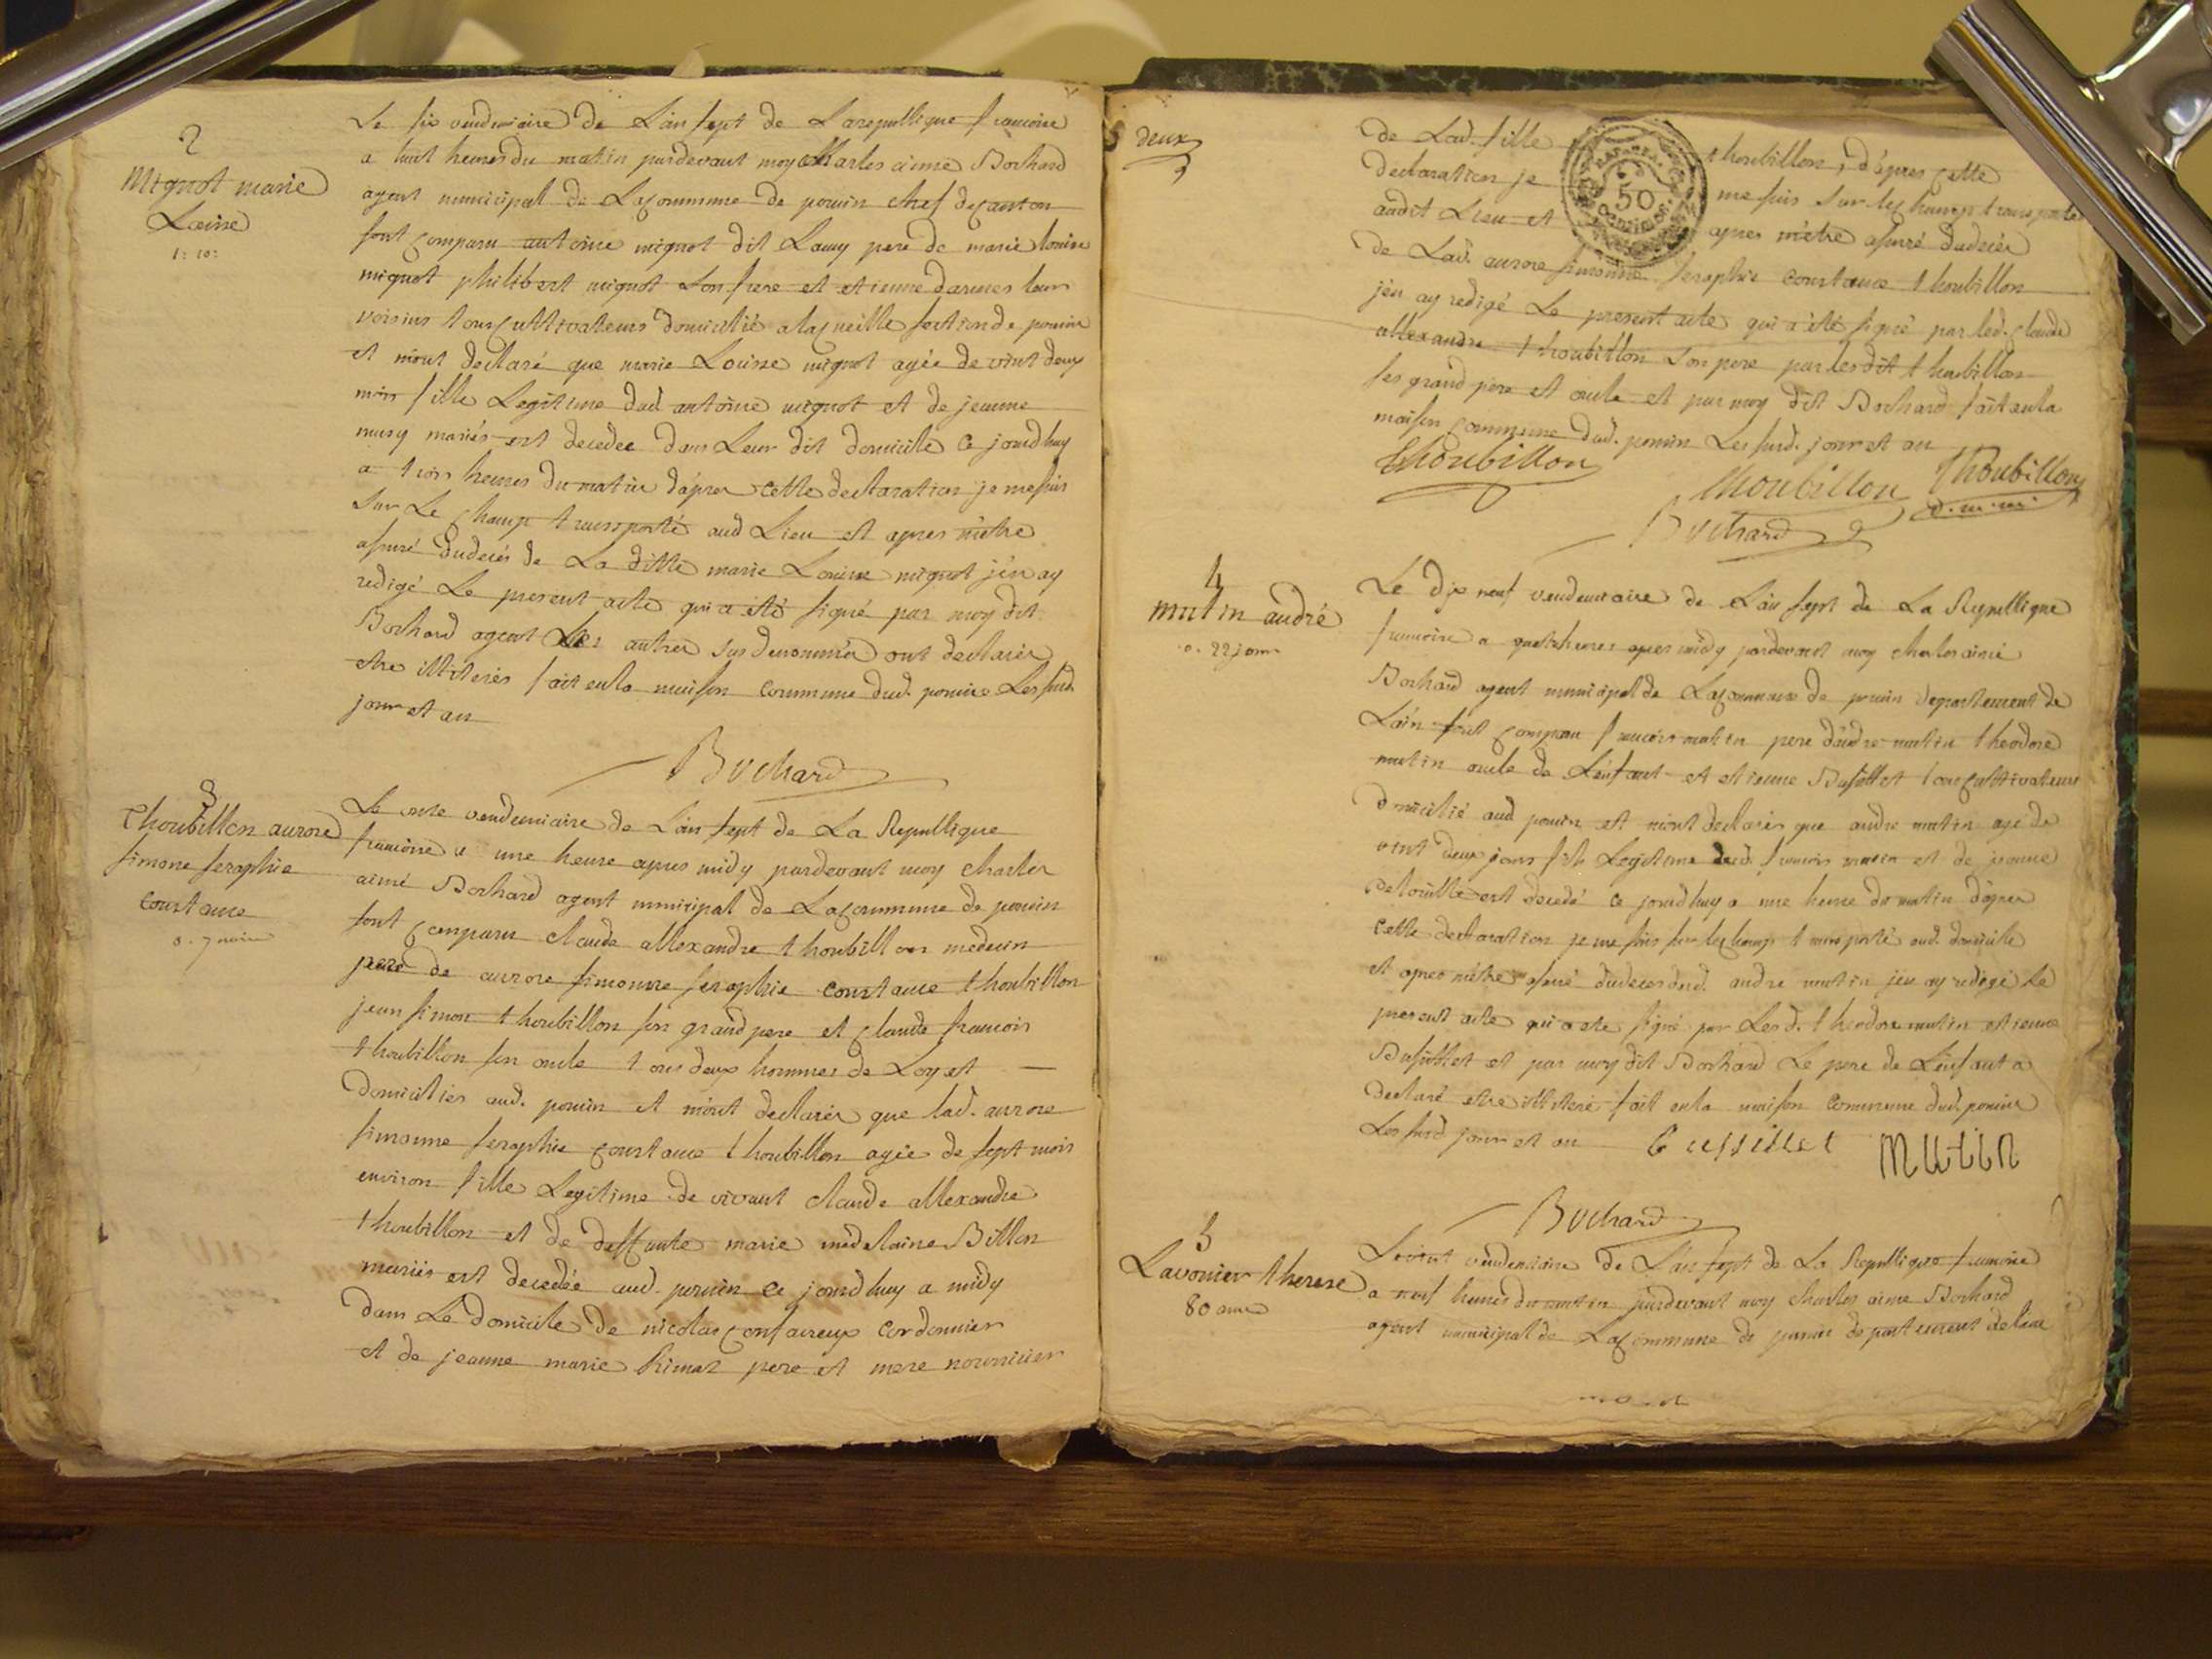 2
Mignot marie
Louise
1: 10:
Le six vendemiaire de L'an sept de La republique francoise
a huit heures du matin pardevant moy Charles aimé Bochard
agent municipal de La commune de poncin chef de canton
sont comparu antoine mignot dit Lamy pere de marie louise
mignot philibert mignot son frere et etienne darmes leur
voisins tous cultivateurs domicilié a la cueille section de poncin
et m'ont declaré que marie Louise mignot agée de vint deux
mois fille Legitime dud. antoine mignot et de jeanne
musy mariés est decedee dans Leur dit domicile ce jourdhuy
a trois heures du matin d'apres cette declaration je me suis
sur Le champ transporté aud Lieu et apres m'etre
assuré du decés de La ditte marie Louise mignot j'en ay
redigé Le present acte qui a été signé par moy dit
Bochard agent Les autres sus denommés ont declarés
etre illiterés fait en la maison commune dud. poncin Les susd.
jour et an
Bochard
3
Thoubillon aurore
simone seraphie
constance
0. 7 mois
Le onze vendemiaire de L'an sept de La Republique
francoise a une heure apres midy pardevant moy charles
aimé Bochard agent municipal de La commune de poncin
sont comparu claude allexandre thoubillon medecin
pere de aurore simonne seraphie constance thoubillon
jean simon thoubillon son grand pere et claude francois
thoubillon son oncle tous deux hommes de Loy et
domiciliés aud. poncin et m'ont declarés que lad. aurore
simonne seraphie constance thoubillon agée de sept mois
environ fille Legitime de vivant claude allexandre
thoubillon et de deffunte marie medelaine Billon
mariés est decedée aud. poncin ce jourdhuy a midy
dans Le domicile de nicolas cordonnier
et de jeanne marie pere et mere nourricier
deux
de Lad. fille thoubillon, d'apres cette
declaration je me suis sur le champ transporté
audit Lieu et apres m'etre assuré du decés
50
de Lad. aurore simonne seraphie constance thoubillon
j'en ay redigé Le present acte qui a été signé par led. claude
allexandre thoubillon son pere par lesdit thoubillon
ses grand pere et oncle et par moy dit Bochard fait en la
maison commune dud. poncin Les susd. jour et an
Thoubillon
Thoubillon Thoubillon
Bochard
4
mutin andré
0. 22 jours
Le dix neuf vendemiaire de L'an sept de La Republique
francoise a quatre heures apres midy pardevant moy charles aimé
Bochard agent municipal de La commune de poncin departement de
L'ain sont comparu francois mutin pere d'andre mutin theodore
mutin oncle de L'enfant et etienne Bussillet tous cultivateurs
domicilié aud poncin et m'ont declarés que andre mutin agé de
vint deux jours fils Legitime dud. francois mutin et de jeanne
est decedé ce jourdhuy a une heure du matin d'apres
cette declaration je me suis sur le champ transporté aud. domicile
et apres m'etre assuré du deces dud. andre mutin j'en ay redigé Le
present acte qui a ete signé par Lesd. theodore mutin etienne
Bussillet et par moy dit Bochard Le pere de L'enfant a
declaré etre illiteré fait en la maison commune dud. poncin
Les susd jour et an Bussillet mutin
Bochard
5
Lavonier therese
80 ans
Le vint vendemiaire de L'an sept de La Republique francoise
a neuf heures du matin pardevant moy charles aimé Bochard
agent municipal de La commune de poncin departement de L'ain